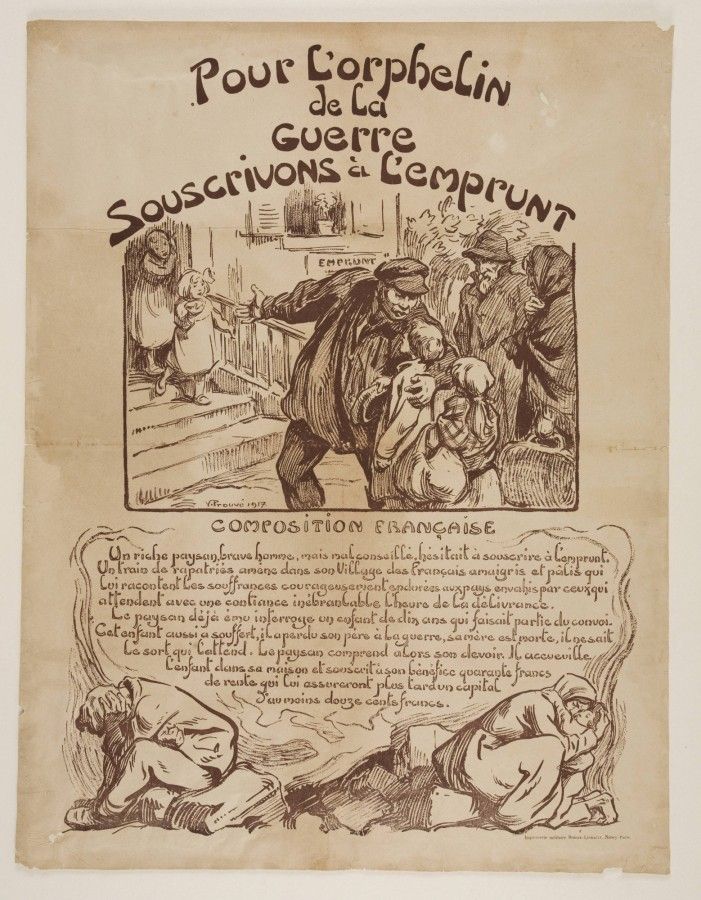 Pour L'orphelin
de La
Guerre
Souscrivons à L'emprunt
EMPRUNT
V. Prouvé 1917
COMPOSITION FRANÇAISE
Un riche paysan, brave homme, mais mal conseillé, hésitait à souscrire à L'emprunt.
Un train de rapatriés amène dans son Village des Français amaigris et pâlis qui
Lui racontent Les souffrances courageusement endurées aux pays envahis par ceux qui
attendent avec une confiance inébranlable L'heure de La délivrance.
Le paysan déjà ému interroge un enfant de dix ans qui faisait partie du convoi.
Cet enfant aussi a souffert, il a perdu son père à La guerre, sa mère est morte, il ne sait
Le sort qui L'attend. Le paysan comprend alors son devoir. Il accueille
L'enfant dans sa maison et souscrit à son bénéfice quarante francs
de rente qui Lui assureront plus tard un capital
d'au moins douze cents francs.
Imprimerie militaire Berger-Levrault, Nancy-Paris